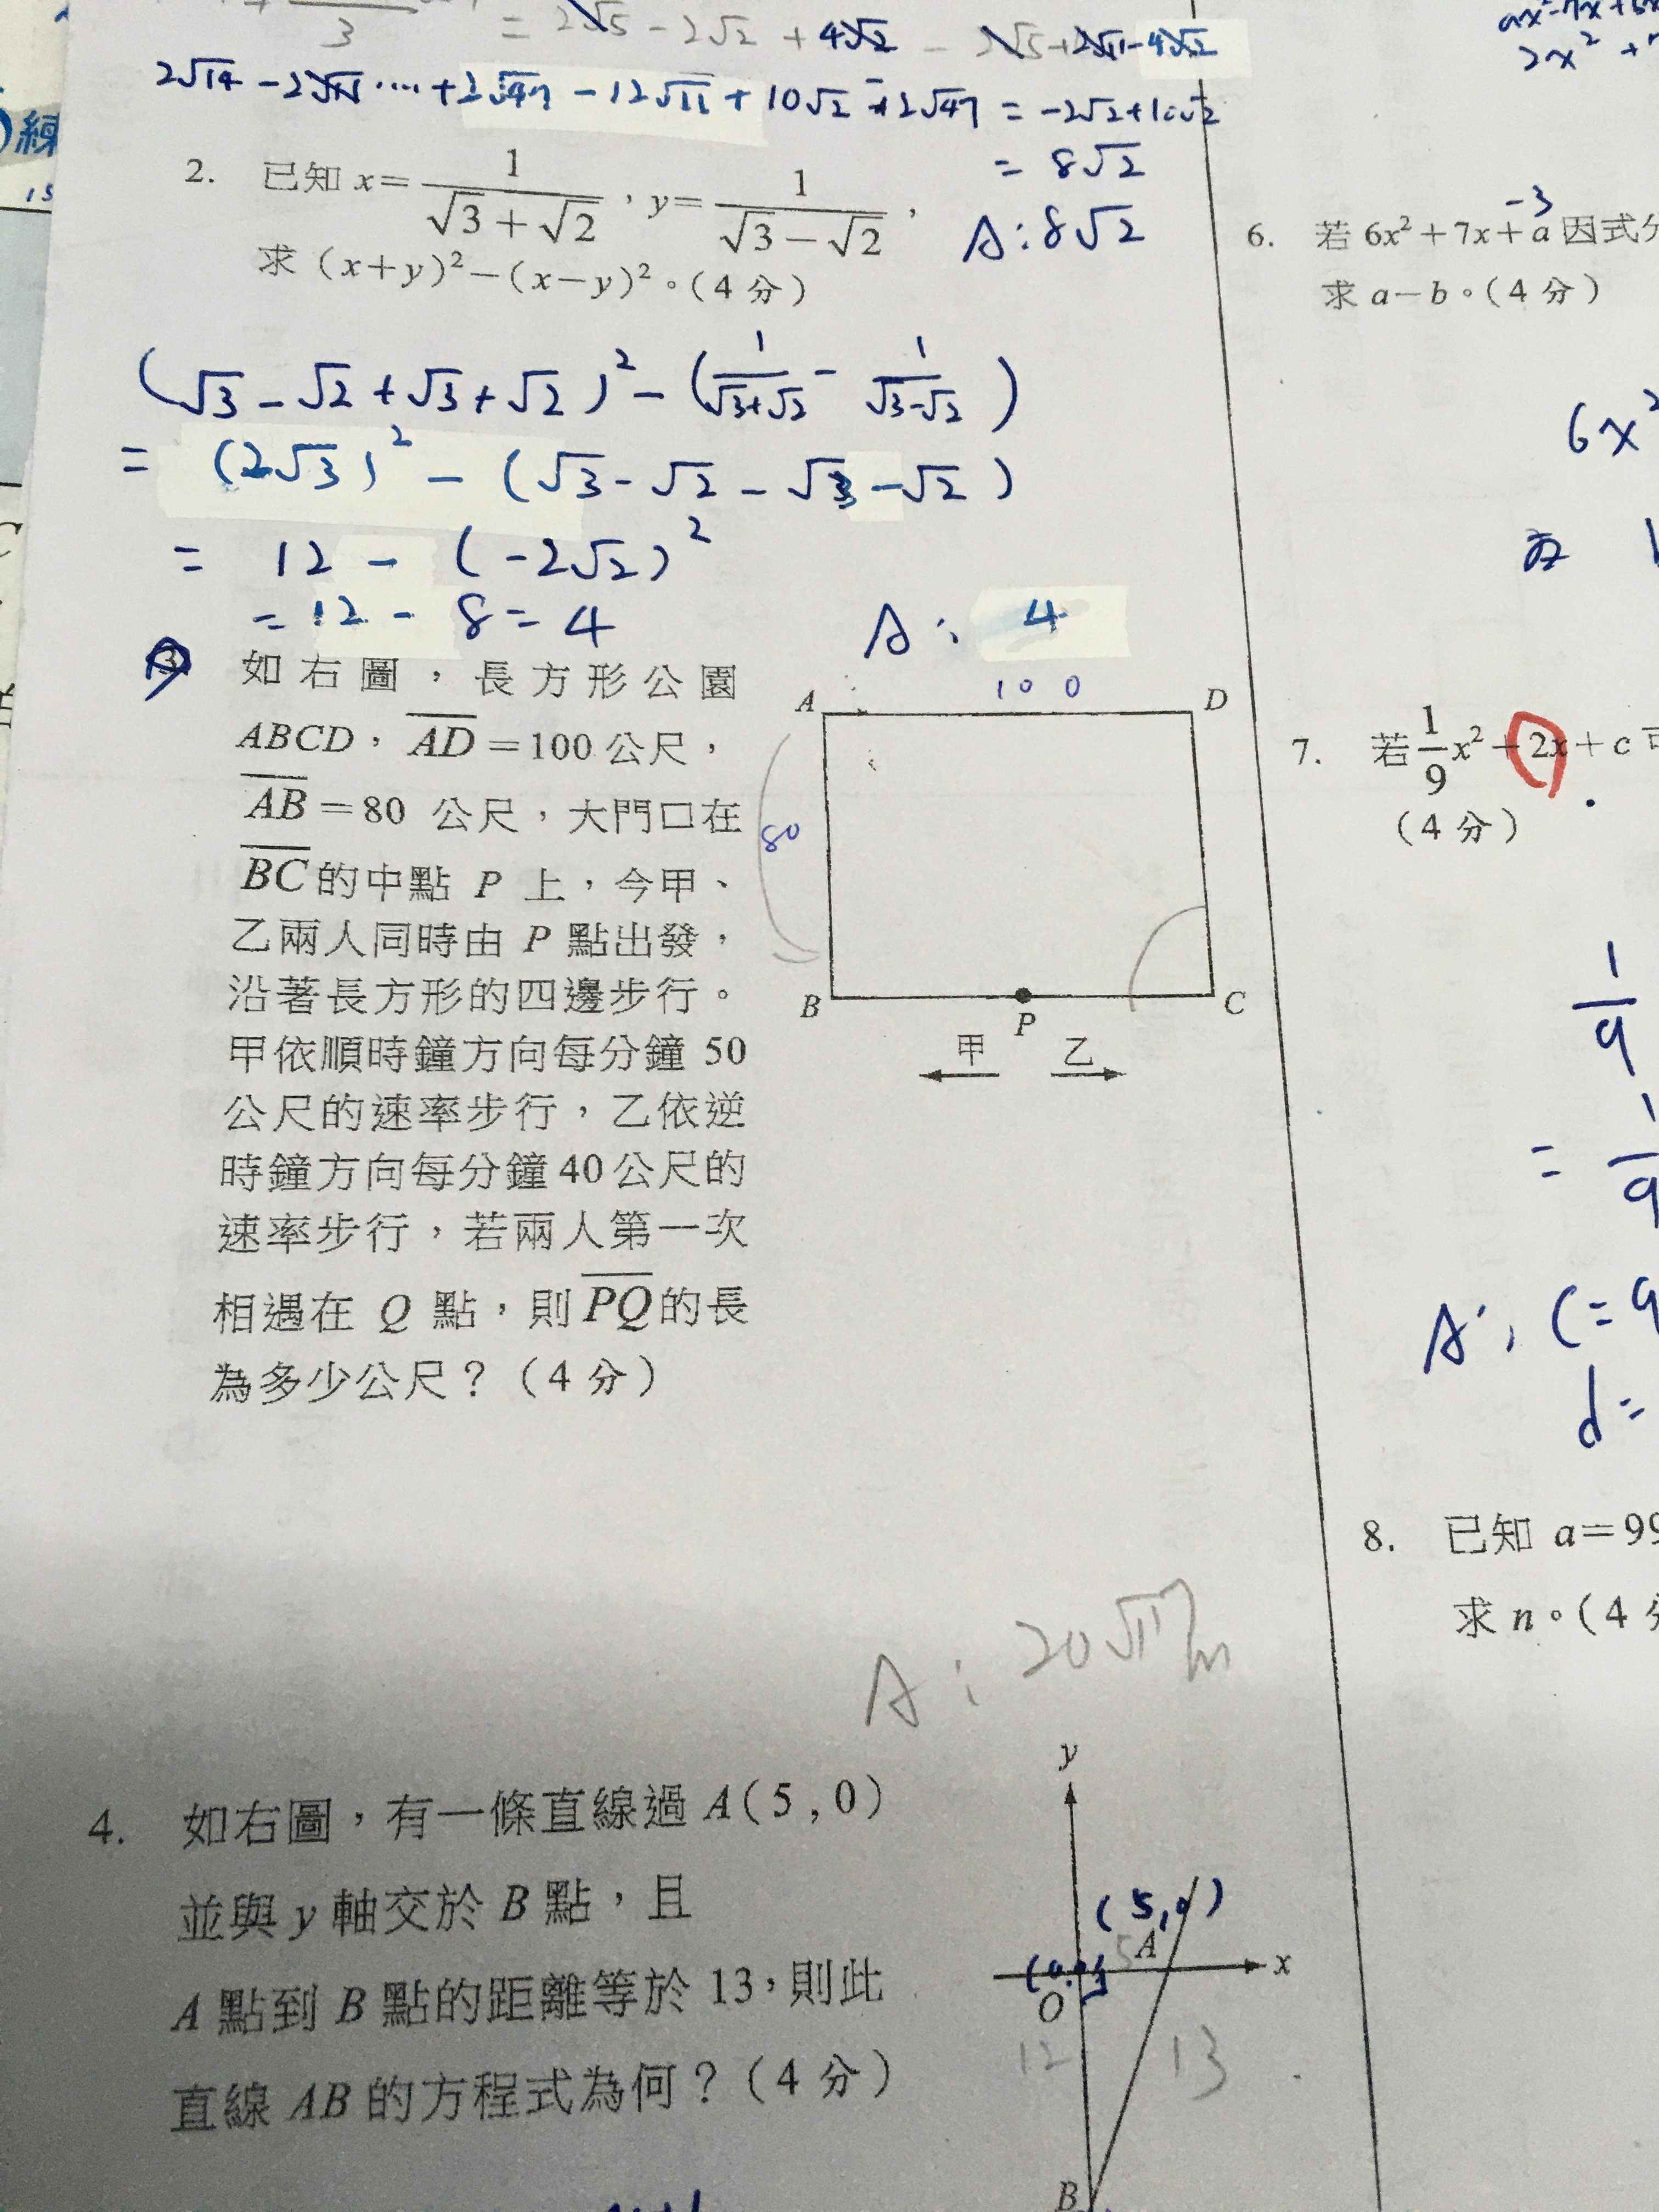 3
= 2√5 - 2√2 + 4√2 - 2√5 + 2√11 - 4√2
2√14 - 2√11 ... + 2√47 - 12√11 + 10√2 - 2√47 = -2√2 + 10√2
= 8√2
A:8√2
練
15
2. 已知 x= 1/(√3+√2) , y= 1/(√3-√2) ,
求 (x+y)²-(x-y)²。(4 分)
(√3 - √2 + √3 + √2)² - (1/(√3+√2) - 1/(√3-√2))
= (2√3)² - (√3 - √2 - √3 - √2)
= 12 - (-2√2)²
= 12 - 8 = 4
A: 4
3
如右圖,長方形公園
ABCD,AD=100 公尺,
AB=80 公尺,大門口在
BC的中點 P 上,今甲、
乙兩人同時由 P 點出發,
沿著長方形的四邊步行。
甲依順時鐘方向每分鐘 50
公尺的速率步行,乙依逆
時鐘方向每分鐘 40 公尺的
速率步行,若兩人第一次
相遇在 Q 點,則 PQ 的長
為多少公尺?(4 分)
A
100
D
80
B
P
C
甲 乙
A: 20√17 m
4. 如右圖,有一條直線過 A(5,0)
並與 y 軸交於 B 點,且
A 點到 B 點的距離等於 13,則此
直線 AB 的方程式為何?(4 分)
y
(5,0)
5
A
x
(0,0)
O
12
13
B
2x² +
-3
6. 若 6x²+7x+a 因式分
求 a-b。(4 分)
6x²
7. 若 1/9 x²-2x+c 可
(4 分)
1/9
= 1/9
A: c=9
d=
8. 已知 a=99
求 n。(4 分